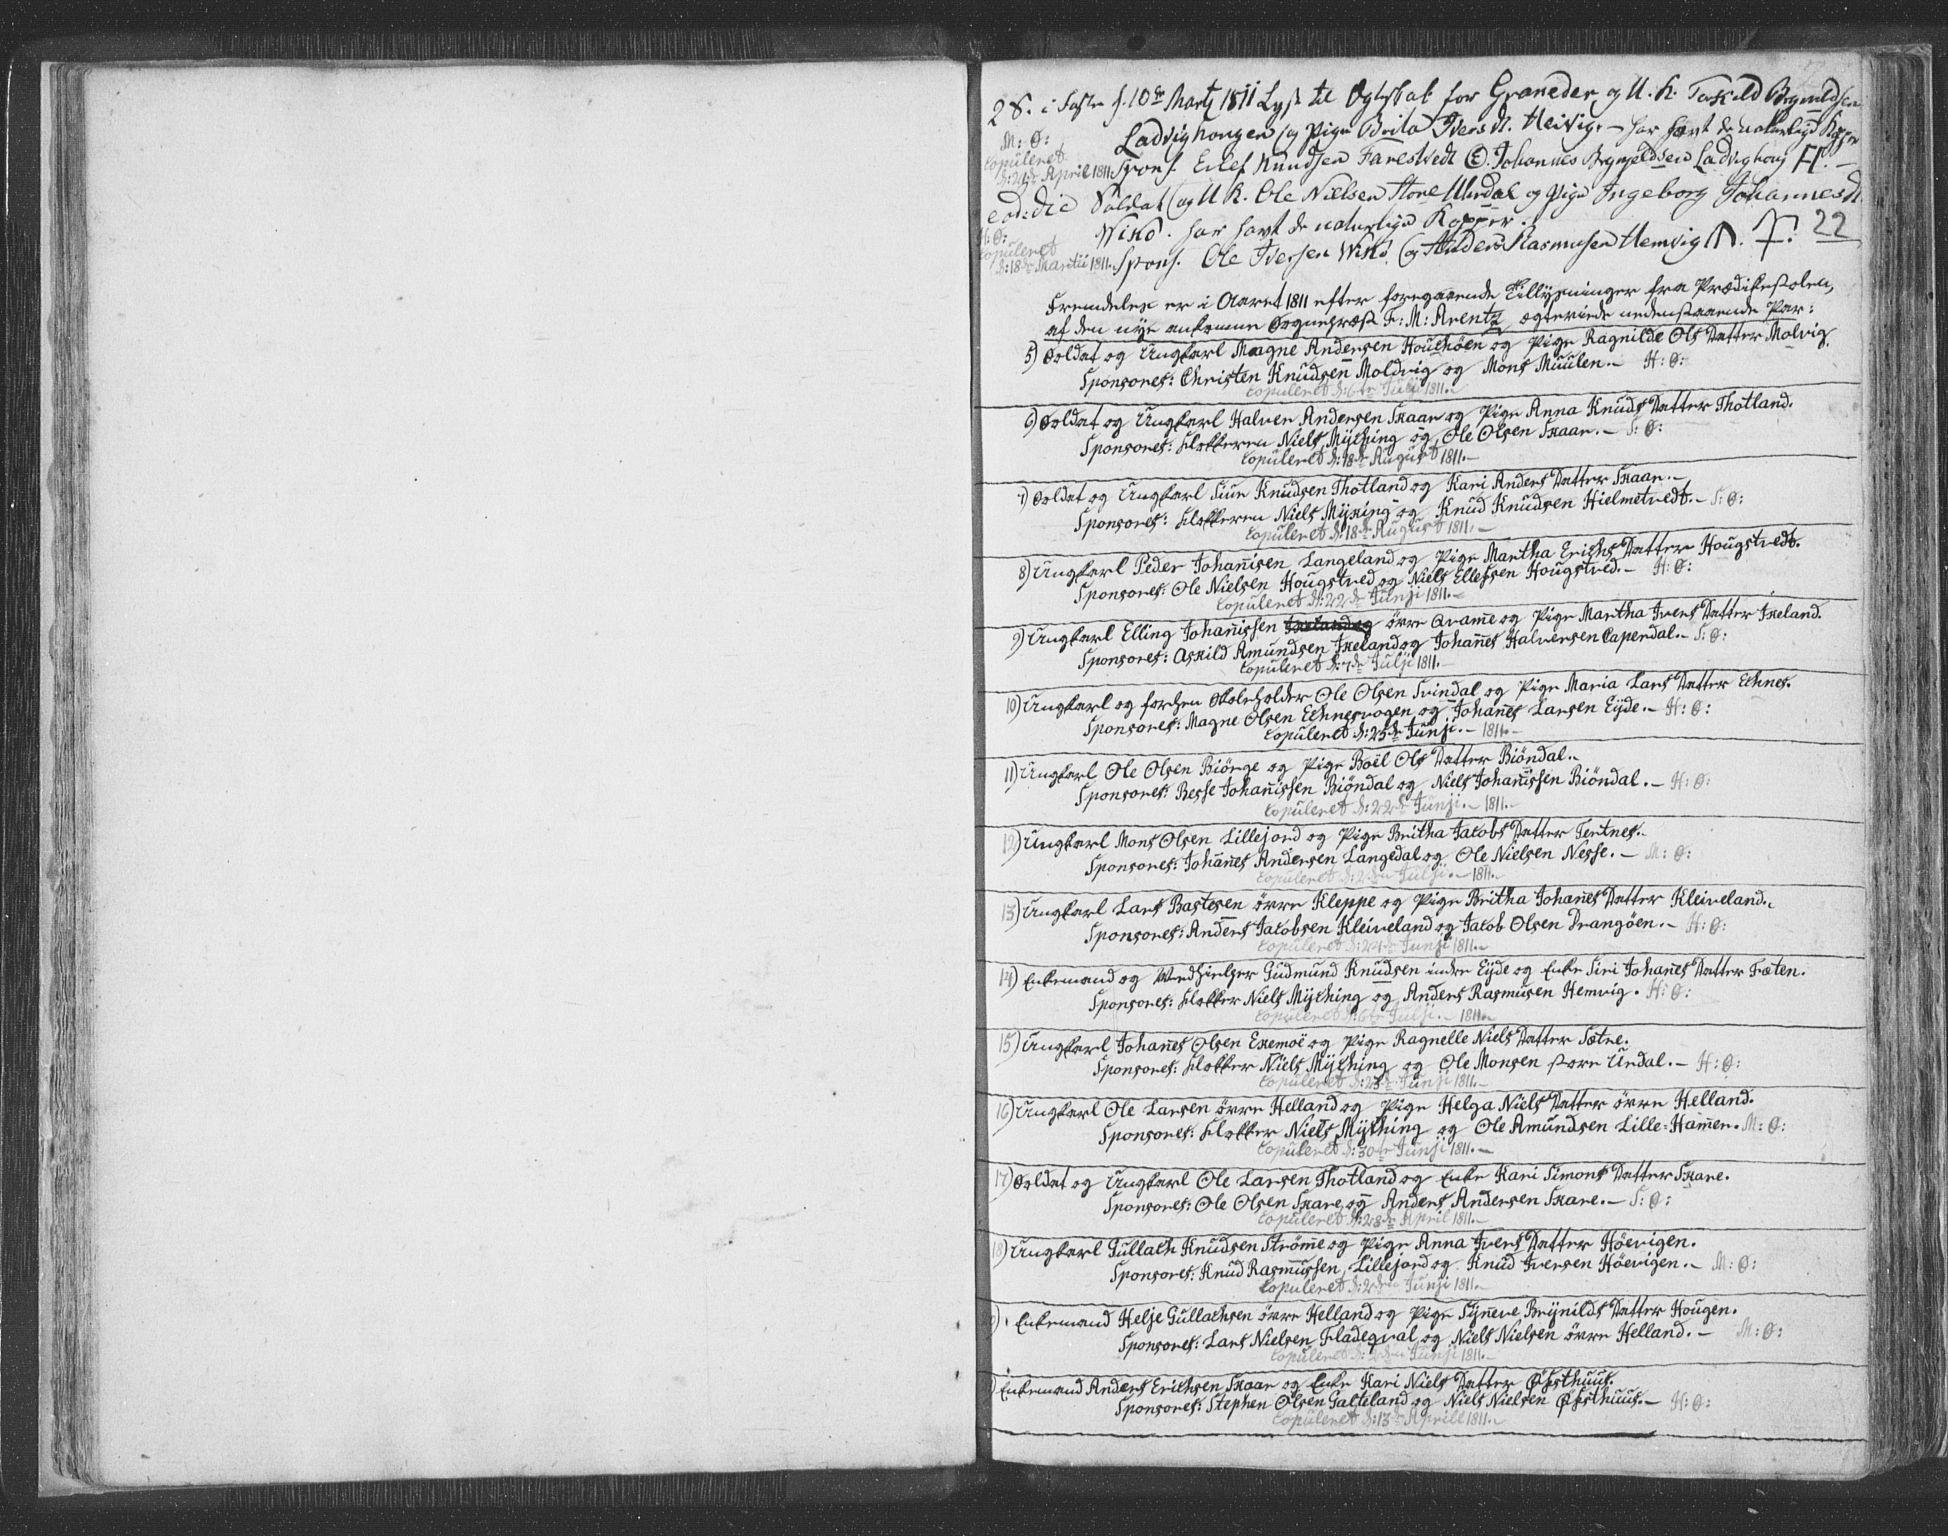 2 S. i Faste d. 10de Martz 1811 Lyst til Ægteskab for Graneder og U. K. Terkild Brynildsen
M: Ø: Ladvighougen og Pige Brita Ivers D. Heivig. – har havt de naturlige Kopper
Copuleret
d: 24de April 1811. Spons. Ellef Knudsen Farestvedt & Johannes Brynjeldsen Ladvighoug
eod: die Soldat og U K. Ole Nielsen Store Uhrdal og Pige Ingeborg Johannes D.
H: Ø: Wiko. har havt de naturlige Kopper.
22
Copuleret
d: 18de Martii 1811. Spons. Ole Iversen Wiko og Anders Rasmusen Hemvig
Fremdeles er i Aaret 1811 efter foregaaende Tillysninger fra Prædikestolen,
af den nye ankomne Sognepræst F: M: Arentz ægteviede nedenstaaende Par:
5) Soldat og Ungkarl Magne Andersen Houghöen og Pige Ragnilde Ols Datter Molvig.
Sponsores: Christen Knudsen Moldvig og Mons Muulen. – H: Ø:
Copuleret d: 6te Julii 1811. –
6) Soldat og Ungkarl Halver Andersen Skaar og Pige Anna Knuds Datter Thotland.
Sponsores: Klokkeren Niels Mÿking og Ole Olsen Skaar. – S: Ø:
Copuleret d: 18de August 1811. –
7) Soldat og Ungkarl Siur Knudsen Thotland og Kari Anders Datter Skaar. –
Sponsores: Klokkeren Niels Mÿking og Knud Knudsen Hielmetvedt. – S: Ø:
Copuleret d: 18de August 1811. –
8) Ungkarl Peder Johanisen Langeland og Pige Martha Erichs Datter Hougstvedt.
Sponsores: Ole Nielsen Hougstved og Niels Ellefsen Hougstved. – H: Ø:
Copuleret d: 22de Junji 1811. –
9) Ungkarl Elling Johanissen övre Qvame og Pige Martha Ivers Datter Ixeland.
Sponsores: Askild Amundsen Ixeland og Johanes Halversen Caperdal. – S: Ø:
Copuleret d: 7de Julji 1811. –
10) Ungkarl og forhen Skoleholder Ole Olsen Svindal og Pige Maria Lars Datter Echnes.
Sponsores: Magne Olsen Echnesvogen og Johanes Larsen Eÿde. – H: Ø:
Copuleret d: 25de Junji. – 1811. –
11) Ungkarl Ole Olsen Biörge og Pige Boël Ols Datter Biöndal. –
Sponsores: Besse Johanissen Biöndal og Niels Johanissen Biöndal. – H: Ø:
Copuleret d: 22de Junji. – 1811. –
12) Ungkarl Mons Olsen Lillejord og Pige Britha Jacobs Datter Tertnes. –
Sponsores: Johanes Andersen Langedal og Ole Nielsen Nesse. – M: Ø:
Copuleret Julji. – 1811. –
13) Ungkarl Lars Bastesen övre Kleppe og Pige Britha Johanes Datter Kleiveland. –
Sponsores: Anders Jacobsen Kleiveland og Jacob Olsen Drangöen. – H: Ø:
Copuleret d: 24de Junji 1811. –
14) Enkemand og Medhielper Gudmund Knudsen indre Eÿde og Enke Siri Johanes Datter Træten.
Sponsores: Klokker Niels Mÿking og Anders Rasmusen Hemvig. H: Ø:
Copuleret d: 6te Julji. – 1811. –
15) Ungkarl Johanes Olsen Exemoë og Pige Ragnelle Niels Datter Sætre.
Sponsores: Klokker Niels Mÿking og Ole Monsen store Urdal. – H: Ø:
Copuleret d: 23de Junji 1811. –
16) Ungkarl Ole Larsen övre Helland og Pige Helga Niels Datter övre Helland.
Sponsores: Klokker Niels Mÿking og Ole Amundsen Lille-Hamer. M: Ø:
Copuleret d: 30te Junji 1811. –
17) Soldat og Ungkarl Ole Larsen Thotland og Enke Kari Simons Datter Skare.
Sponsores: Ole Olsen Skare og Anders Andersen Skare. – S: Ø:
Copuleret d: 28de April 1811. –
18) Ungkarl Gullach Knudsen Ströme og Pige Anna Ivers Datter Höevigen.
Sponsores: Knud Rasmussen Lillejord og Knud Iversen Höevigen. – M: Ø:
Copuleret d: 2den Junji 1811. –
Enkemand Helje Gullachsen övre Helland og Pige Sÿneve Brÿnilds Datter Hougen.
Sponsores: Lars Nielsen Fladeqval og Niels Nielsen övre Helland. – M: Ø:
Copuleret d: 2den Junji 1811. –
Enkemand Anders Erichsen Skaar og Enke Kari Niels Datter Østhuus.
Sponsores: Stephen Olsen Galteland og Niels Nielsen Østhuus. – H: Ø:
Copuleret d: 13de Aprill 1811. –